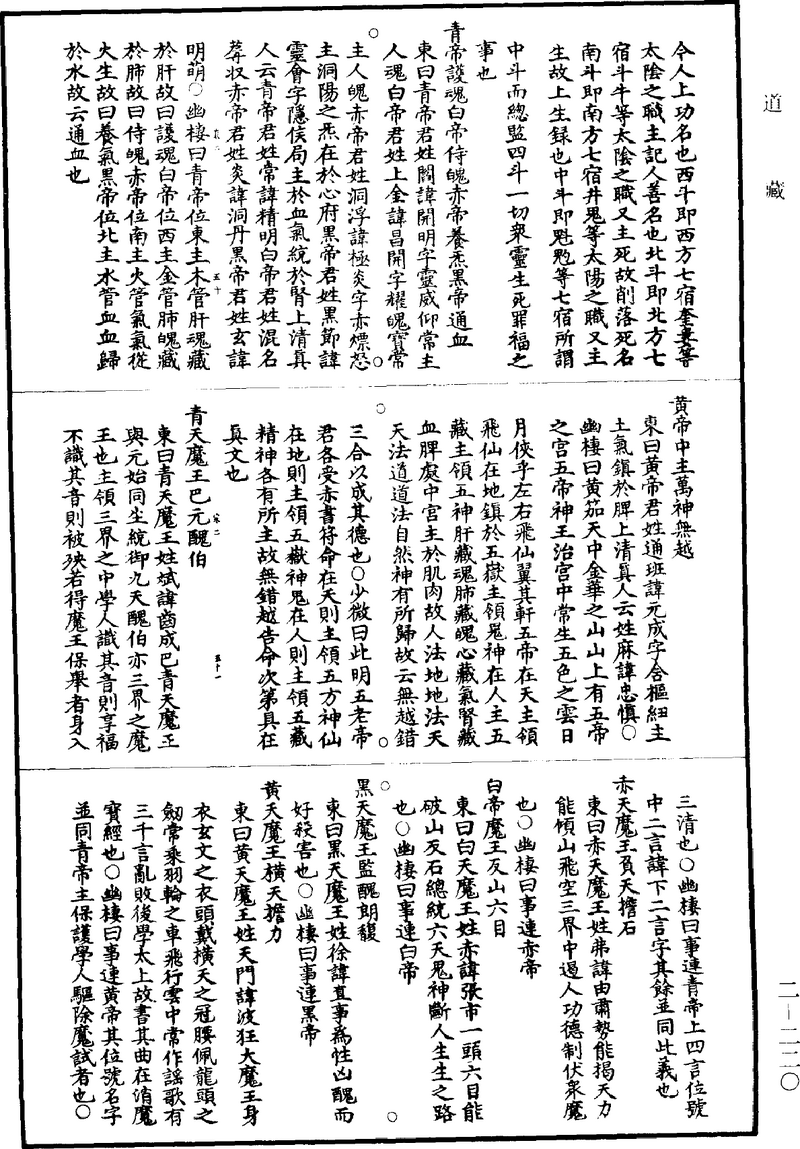 道藏
令人上功名也西斗即西方七宿奎婁等
太陰之職主記人善名也北斗即北方七
宿斗牛等太陰之職又主死故削落死名
南斗即南方七宿井鬼等太陽之職又主
生故上生録也中斗即魁魒等七宿所謂
中斗而總監四斗一切衆靈生死罪福之
事也
青帝護魂白帝侍魄赤帝養炁黑帝通血
東曰青帝君姓閻諱開明字靈威仰常主
人魂白帝君姓上金諱昌開字耀魄寶常
主人魄赤帝君姓洞浮諱極炎字赤熛怒
主洞陽之炁在於心府黑帝君姓黑節諱
靈會字隱侯局主於血氣統於腎上清真
人云青帝君姓常諱精明白帝君姓混名
蓐収赤帝君姓炎諱洞丹黑帝君姓玄諱
明萌○幽棲曰青帝位東主木管肝魂藏
於肝故曰護魂白帝位西主金管肺魄藏
於肺故曰侍魄赤帝位南主火管氣氣從
火生故曰養氣黑帝位北主水管血血歸
於水故云通血也
五十
黃帝中主萬神無越
東曰黃帝君姓通班諱元成字含樞紐主
土氣鎮於脾上清真人云姓麻諱忠愼○
幽棲曰黃笳天中金華之山山上有五帝
之宮五帝神王治宮中常生五色之雲日
月俠乎左右飛仙翼其軒五帝在天主領
飛仙在地鎮於五嶽主領鬼神在人主五
藏主領五神肝藏魂肺藏魄心藏氣腎藏
血脾處中宮主於肌肉故人法地地法天
天法道道法自然神有所歸故云無越錯
三合以成其德也○少微曰此明五老帝
君各受赤書符命在天則主領五方神仙
在地則主領五嶽神鬼在人則主領五藏
精神各有所主故無錯越告命次第具在
真文也
五十一
青天魔王巴元醜伯
東曰青天魔王姓斌諱酋成巴青天魔王
與元始同生統御九天醜伯亦三界之魔
王也主領三界之中學人識其音則享福
不識其音則被殃若得魔王保舉者身入
三清也○幽棲曰事連青帝上四言位號
中二言諱下二言字其餘並同此義也
赤天魔王負天擔石
東曰赤天魔王姓弗諱由肅勢能揭天力
能傾山飛空三界中過人功德制伏衆魔
也○幽棲曰事連赤帝
白帝魔王反山六目
東曰白天魔王姓赤諱張市一頭六目能
破山反石總統六天鬼神斷人生生之路
也○幽棲曰事連白帝
黑天魔王監醜朗馥
東曰黑天魔王姓徐諱直事爲性凶醜而
好殺害也○幽棲曰事連黑帝
黃天魔王橫天擔力
東曰黃天魔王姓天門諱波狂大魔王身
衣玄文之衣頭戴橫天之冠腰佩龍頭之
劒常乘羽輪之車飛行雲中常作謡歌有
三千言亂敗後學太上故書其曲在消魔
寶經也○幽棲曰事連黃帝其位號名字
並同青帝主保護學人驅除魔試者也○
二－二二〇